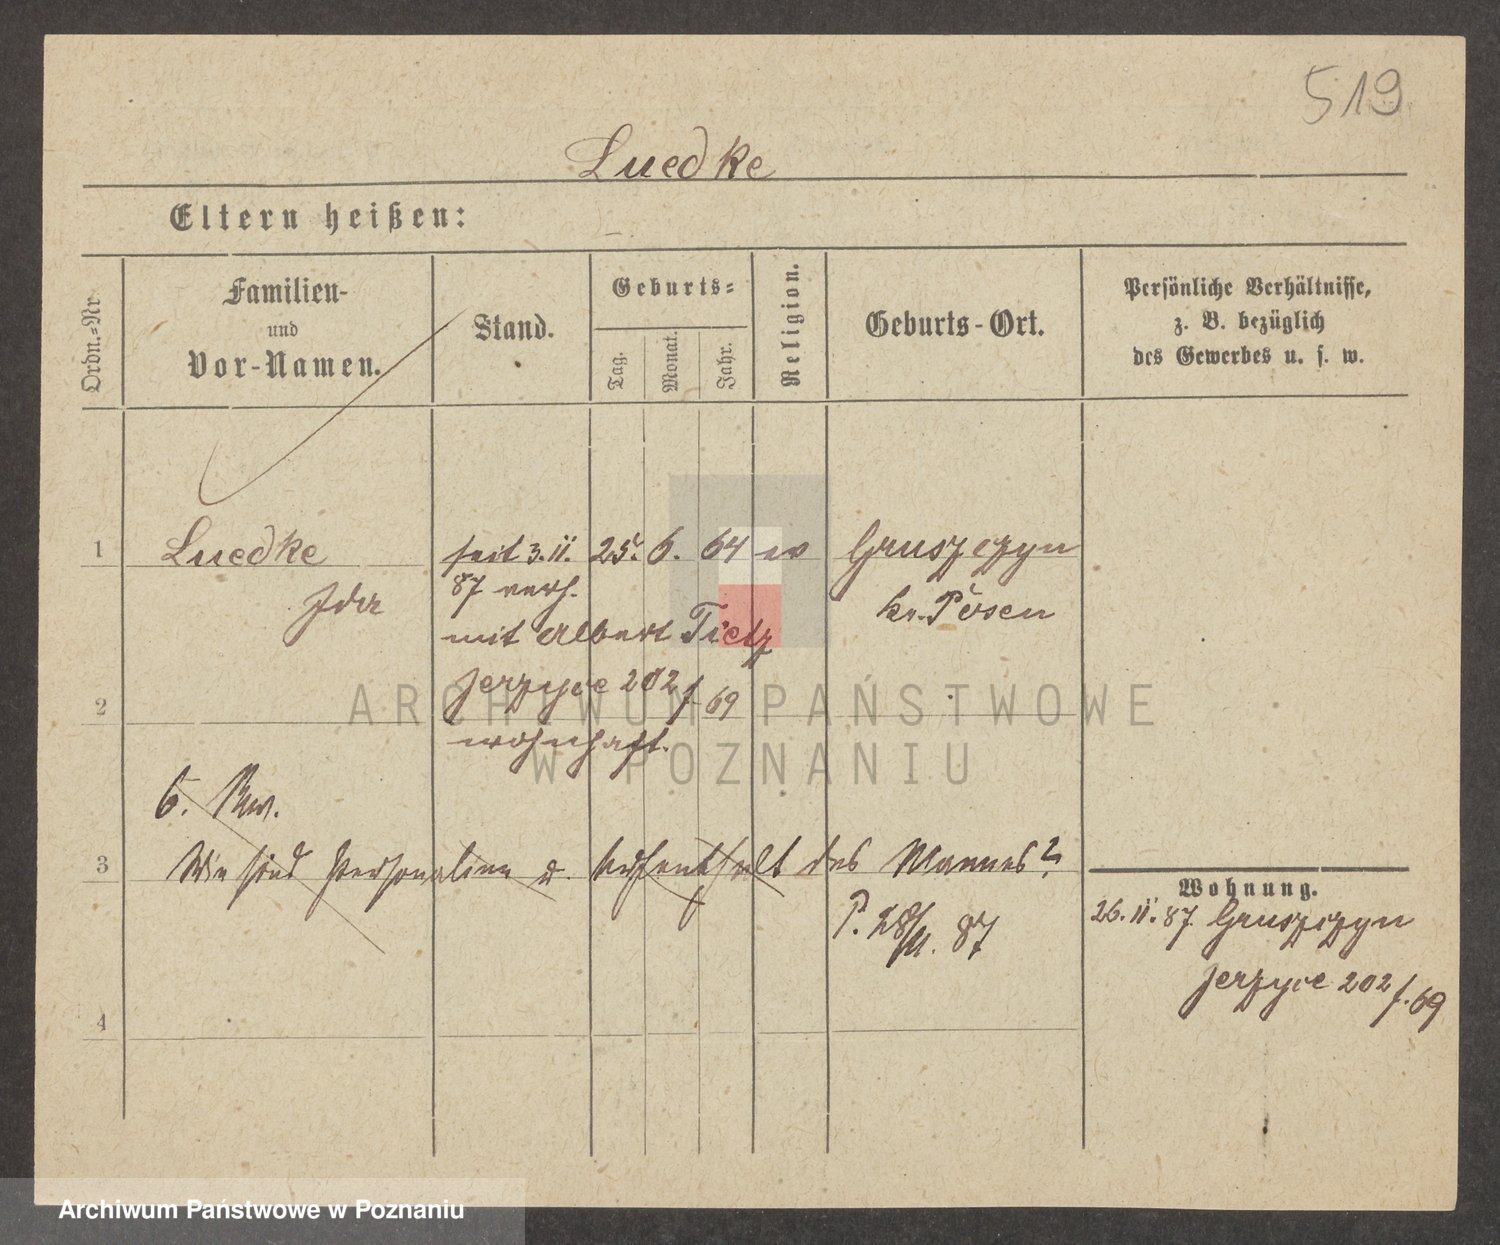 519
Luedke
Eltern heißen:
Ordn.=Nr
Familien-
und
Vor-Namen.
Stand.
Geburts=
Tag.
Monat.
Jahr.
Religion.
Geburts-Ort.
Persönliche Verhältnisse,
z. B. bezüglich
des Gewerbes u. s. w.
1
Luedke
Ida
seit 3.11.
87 verh.
mit Albert Tietz
Jerzyce 202 f. 69
wohnhaft.
25. 6. 64 ev
Gruszczyn
Kr. Posen
2
6. Rev.
3
Wie sind Personalien u. Aufenthalt des Mannes?
P. 28/11. 87
Wohnung.
26.11.87. Gruszczyn
Jerzyce 202 f. 69
4
ARCHIWUM PAŃSTWOWE
W POZNANIU
Archiwum Państwowe w Poznaniu